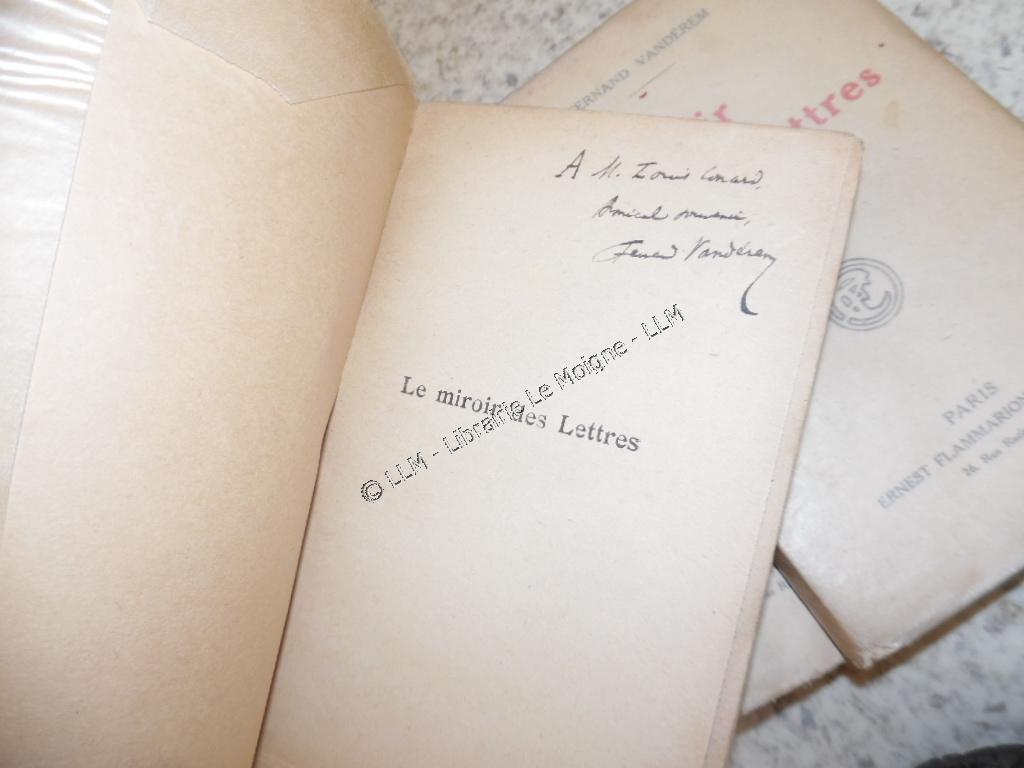 A M. Louis Conard,
Amical souvenir,
Fernand Vandérem
Le miroir des Lettres
© LLM - Librairie Le Moigne - LLM
ERNAND VANDÉREM
ir
ttres
PARIS
ERNEST FLAMMARION
26, Rue